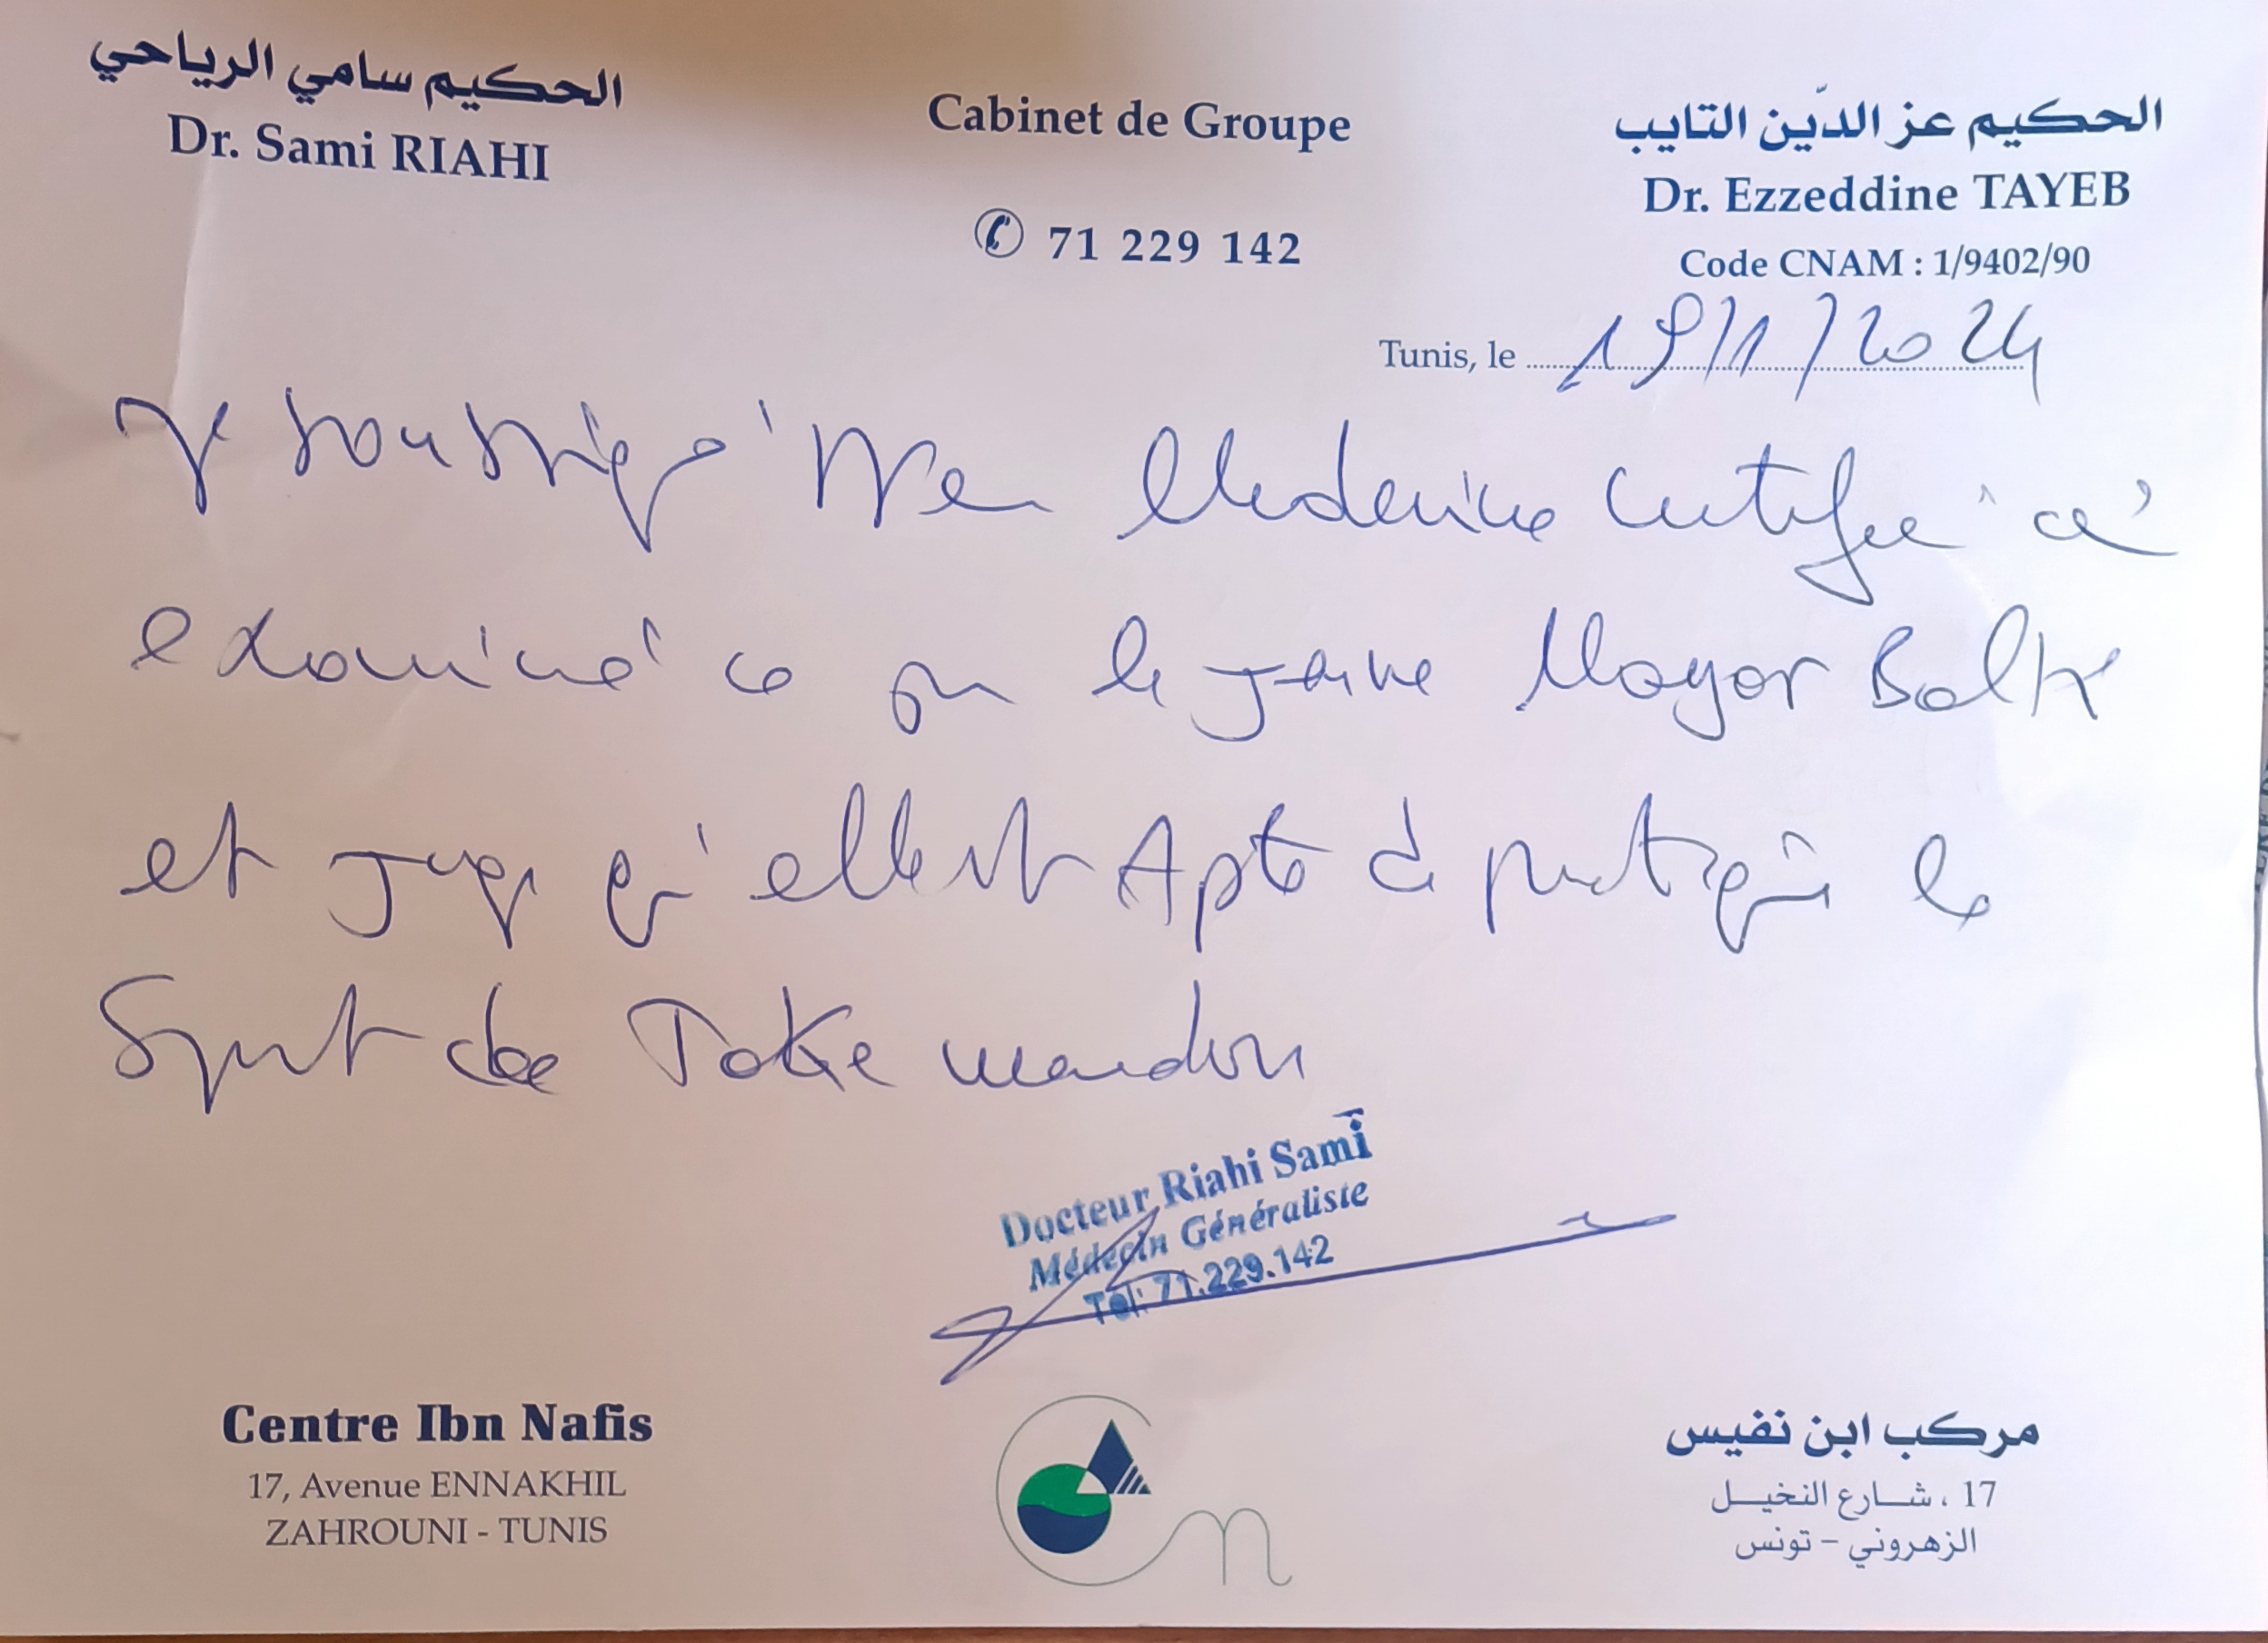 الحكيم سامي الرياحي
Dr. Sami RIAHI
Cabinet de Groupe
71 229 142
الحكيم عز الدّين التايب
Dr. Ezzeddine TAYEB
Code CNAM : 1/9402/90
Tunis, le 19/1/2024
Je soussigné Médecine certifie a
examiné ce la jeune Mayar
et juge qu'elle est Apte à pratiquer le
Sport de
Docteur Riahi Sami
Médecin Généraliste
Tél: 71.229.142
Centre Ibn Nafis
17, Avenue ENNAKHIL
ZAHROUNI - TUNIS
مركب ابن نفيس
17 ، شارع النخيل
الزهروني - تونس